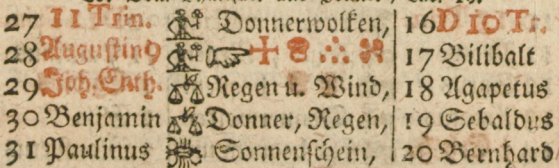 27 11 Trin. Donnerwolken, 16 D 10 Tr.
28 Augustin9 17 Bilibalt
29 Joh. Enth. Regen u. Wind, 18 Agapetus
30 Benjamin Donner, Regen, 19 Sebaldus
31 Paulinus Sonnenschein, 20 Bernhard